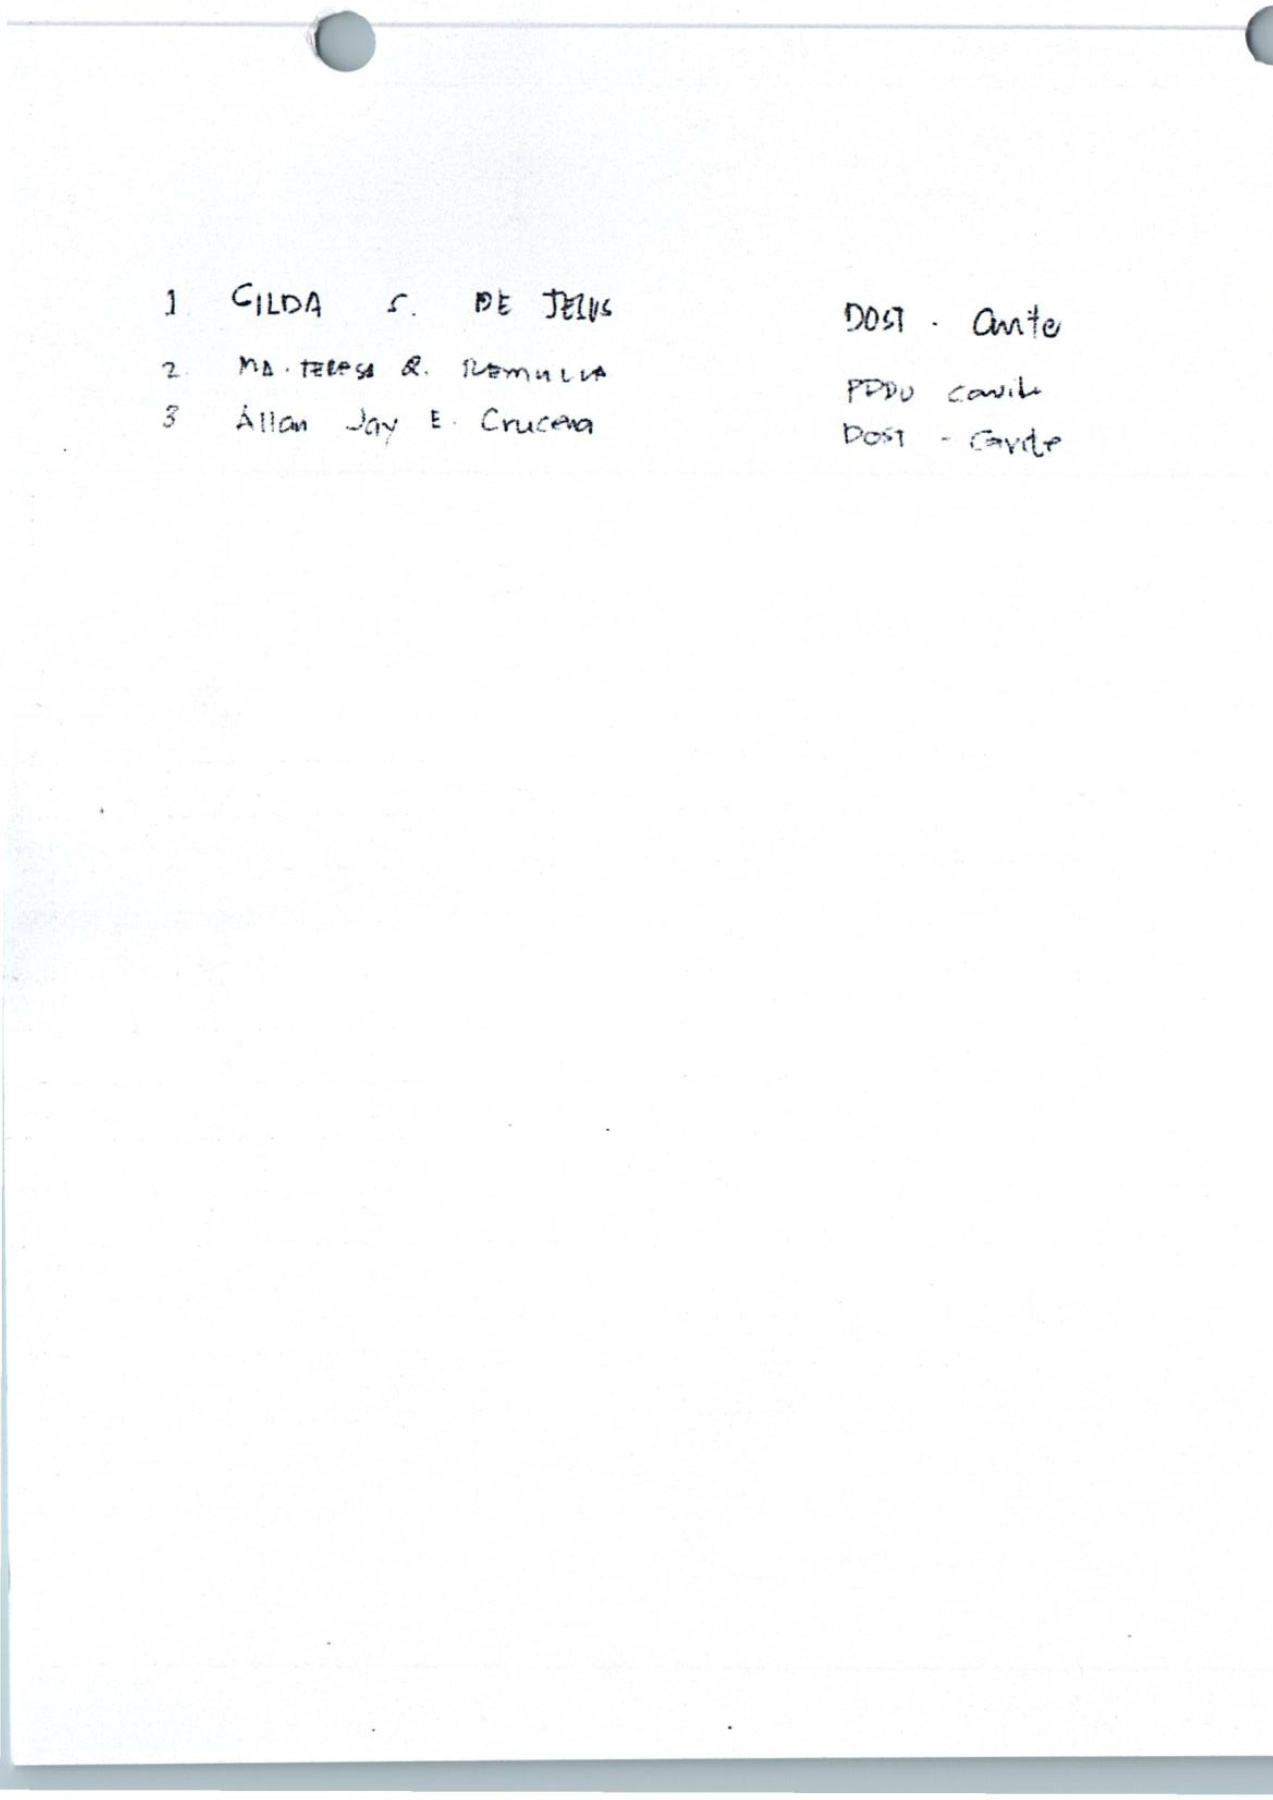 1. GILDA S. DE JESUS DOST - Cavite
2. MA. TERESA R. REMULLA PPDO Cavite
3 Allan Jay E. Crucena DOST - Cavite